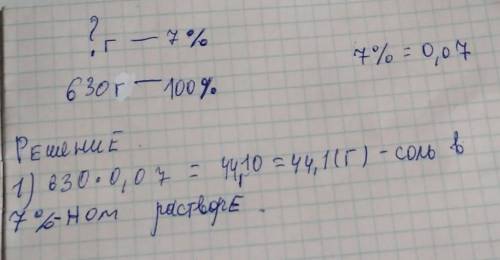 ? г — 7%
7% = 0,07
630г — 100%
РЕШЕНИЕ.
1) 630·0,07 = 44,10 = 44,1(г) - соль в
7%-НОМ растворЕ.